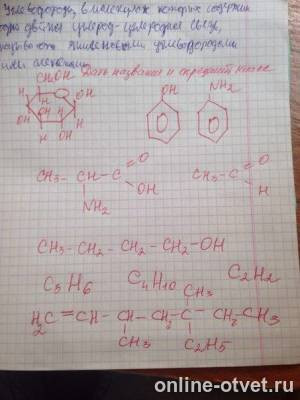 Углеводороды, в молекулах которых содержится
одна двойная углерод-углеродная связь,
называются этиленовыми углеводородами
или алкенами.
Дать название и определить класс
CH₂OH
H O OH
H
OH H
OH
H OH
OH
NH₂
CH₃-CH-C
O
OH
NH₂
CH₃-C
O
H
CH₃-CH₂-CH₂-CH₂-OH
C₃H₆ C₄H₁₀ C₂H₂
CH₃
H₂C=CH-CH-CH₂-C-CH₂-CH₃
CH₃ C₂H₅
online-otvet.ru